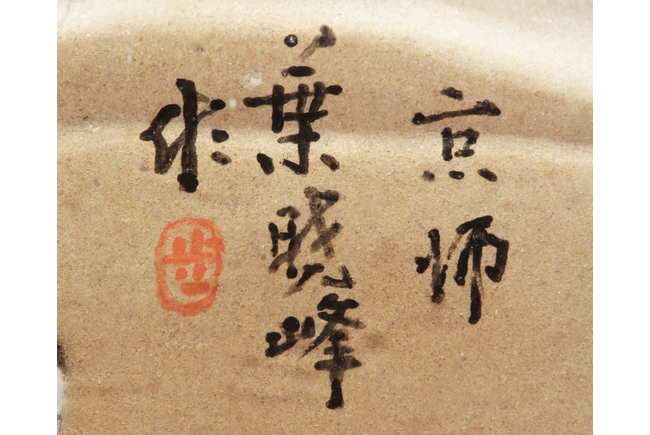 京师
葉晓峰
作